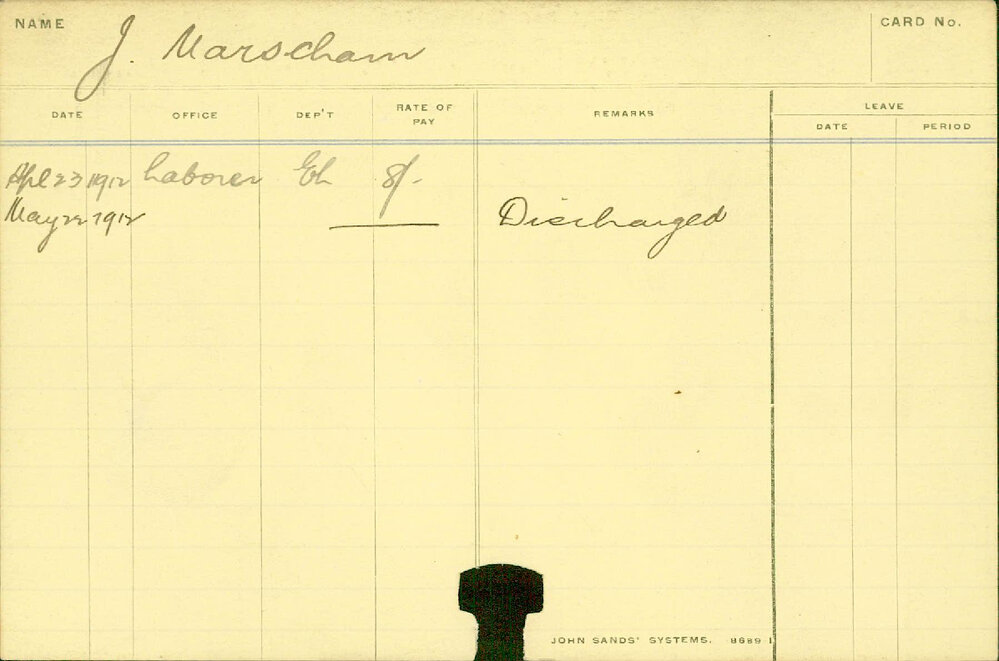 NAME J. Marscham CARD No.
DATE OFFICE DEP'T RATE OF PAY REMARKS LEAVE
DATE PERIOD
Apl 23 1912 Laborer 8/-
May 22 1912 Discharged
JOHN SANDS' SYSTEMS. 8689 1